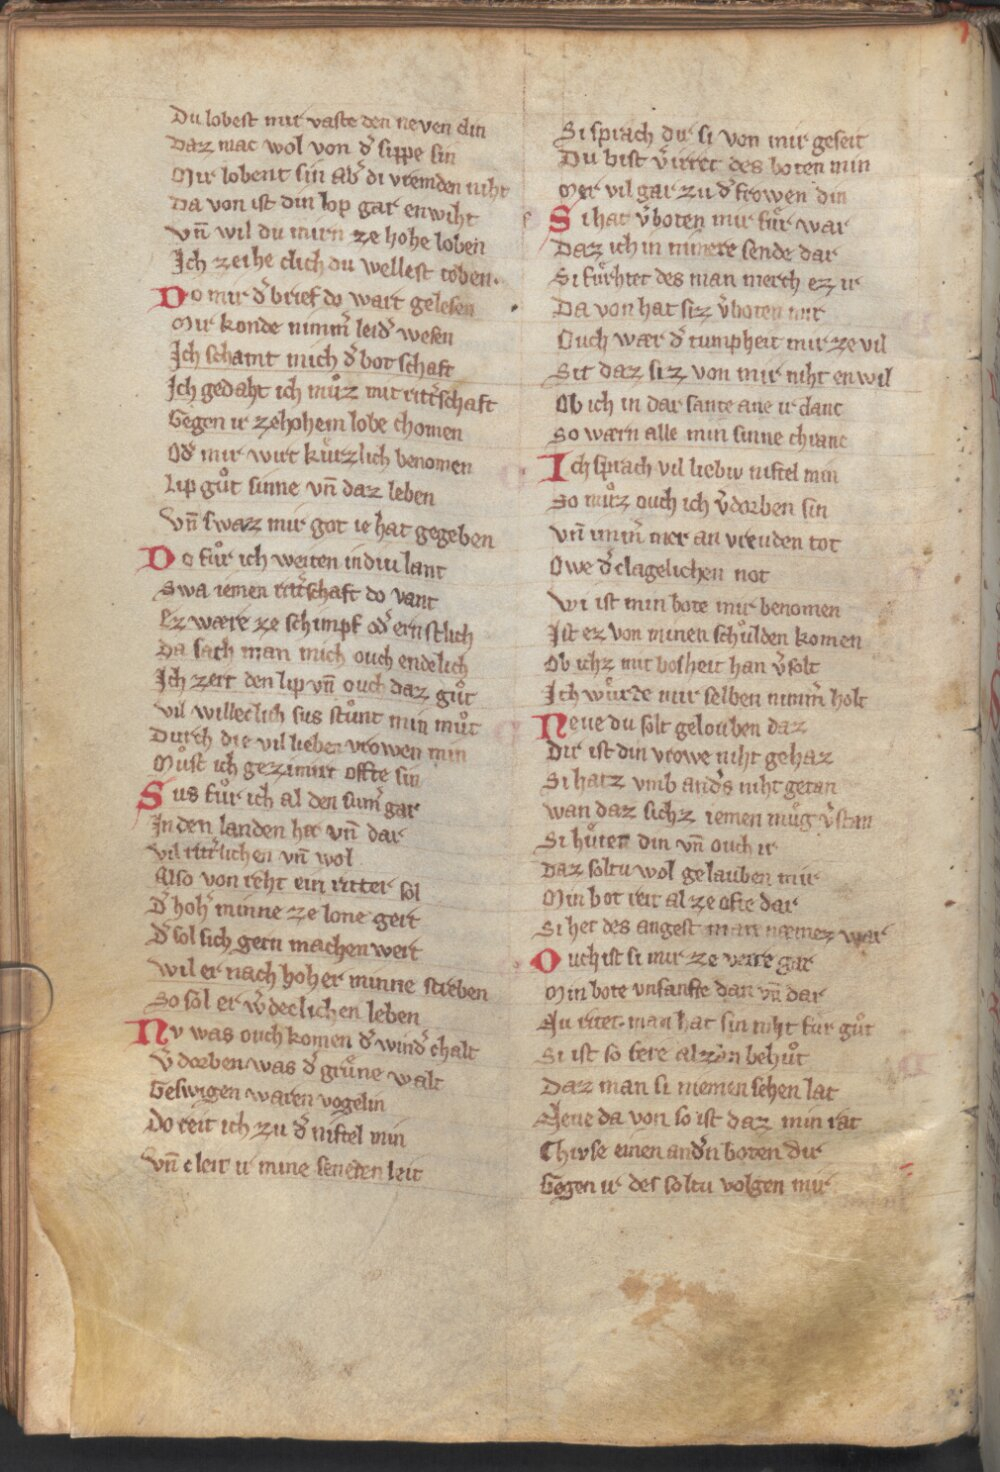 Du lobest mir vaste den neven din
Daz mac wol von d̕ sippe sin
Mir lobent sin ab̕ di vremden niht
Da von ist din lop gar enwiht
Vn̄ wil du mirn ze hohe loben
Ich zeihe dich du wellest toben.
Do mir d̕ brief do wart gelesen
Mir konde nimm̕ leid̕ wesen
Ich schamt mich d̕ botschaft
Ich gedaht ich muͦz mit ritt̕schaft
Gegen ir zehohem lobe chomen
Od̕ mir wirt kuͤrzlich benomen
Lip guͦt sinne vn̄ daz leben
Vn̄ swaz mir got ie hat gegeben
Do fuͦr ich weiten in diu lant
Swa iemen ritt̕schaft do vant
Ez wære ze schimpf od̕ ernstlich
Da sach man mich ouch endelich
Ich zert den lip vn̄ ouch daz guͦt
Vil willeclich sus stuͦnt min muͦt
Durch die vil lieben vrowen min
Muͦst ich gezimirt offte sin
Sus fuͦr ich al den sum̕ gar
In den landen her vn̄ dar
Vil ritt̕lichen vn̄ wol
Also von reht ein ritter sol
D̕ hoh̕ minne ze lone gert
D̕ sol sich gern machen wert
Wil er nach hoher minne streben
So sol er w̕declichen leben
Nv was ouch komen d̕ wind̕ chalt
V̕dorben was d̕ gruͤne walt
Geswigen waren vogelin
Do reit ich zu d̕ niftel min
Vn̄ cleit ir mine seneden leit
Si sprach dir si von mir geseit
Du bist v̕irret des boten min
Mer vil gar zu d̕ frowen din
Si hat v̕boten mir fuͤr war
Daz ich in immere sende dar
Si fuͤrhtet des man merch ez ir
Da von hat siz v̕boten mir
Ouch wær d̕ tumpheit mir ze vil
Sit daz siz von mir niht enwil
Ob ich in dar sante ane ir danc
So wærn alle min sinne chranc
Ich sprach vil liebiv niftel min
So muͦz ouch ich v̕dorben sin
Vn̄ imm̕ mer an vreuden tot
Owe d̕ clagelichen not
Wi ist min bote mir benomen
Ist ez von minen schulden komen
Ob ichz mit bosheit han v̕solt
Ich wuͤrde mir selben nimm̕ holt
Neve du solt gelouben daz
Dir ist din vrowe niht gehaz
Si hatz vmb and̕s niht getan
Wan daz sichz iemen muͤg v̕stan
Si huͤten din vn̄ ouch ir
Daz soltu wol gelauben mir
Min bot reit al ze ofte dar
Si het des angest man næmez war
Ouch ist si mir ze verre gar
Min bote vnsanfte dan vn̄ dar
Nu ritet man hat sin niht fuͤr guͦt
Si ist so sere al zen behuͦt
Daz man si niemen sehen lat
Neve da von so ist daz min rat
Chivse einen and̕n boten dir
Gegen ir des soltu volgen mir